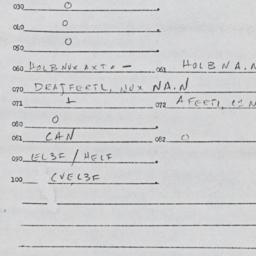 030 O
040 O
050 O
060 HOLBNUXAXTX- 061 HOLBNA.N
070 DEAJFERTL, NUX NA.N
071 1 072 AFERTL,
080 O
081 CAN 082 O
090 EL3F/HELF
100 CVEL3F